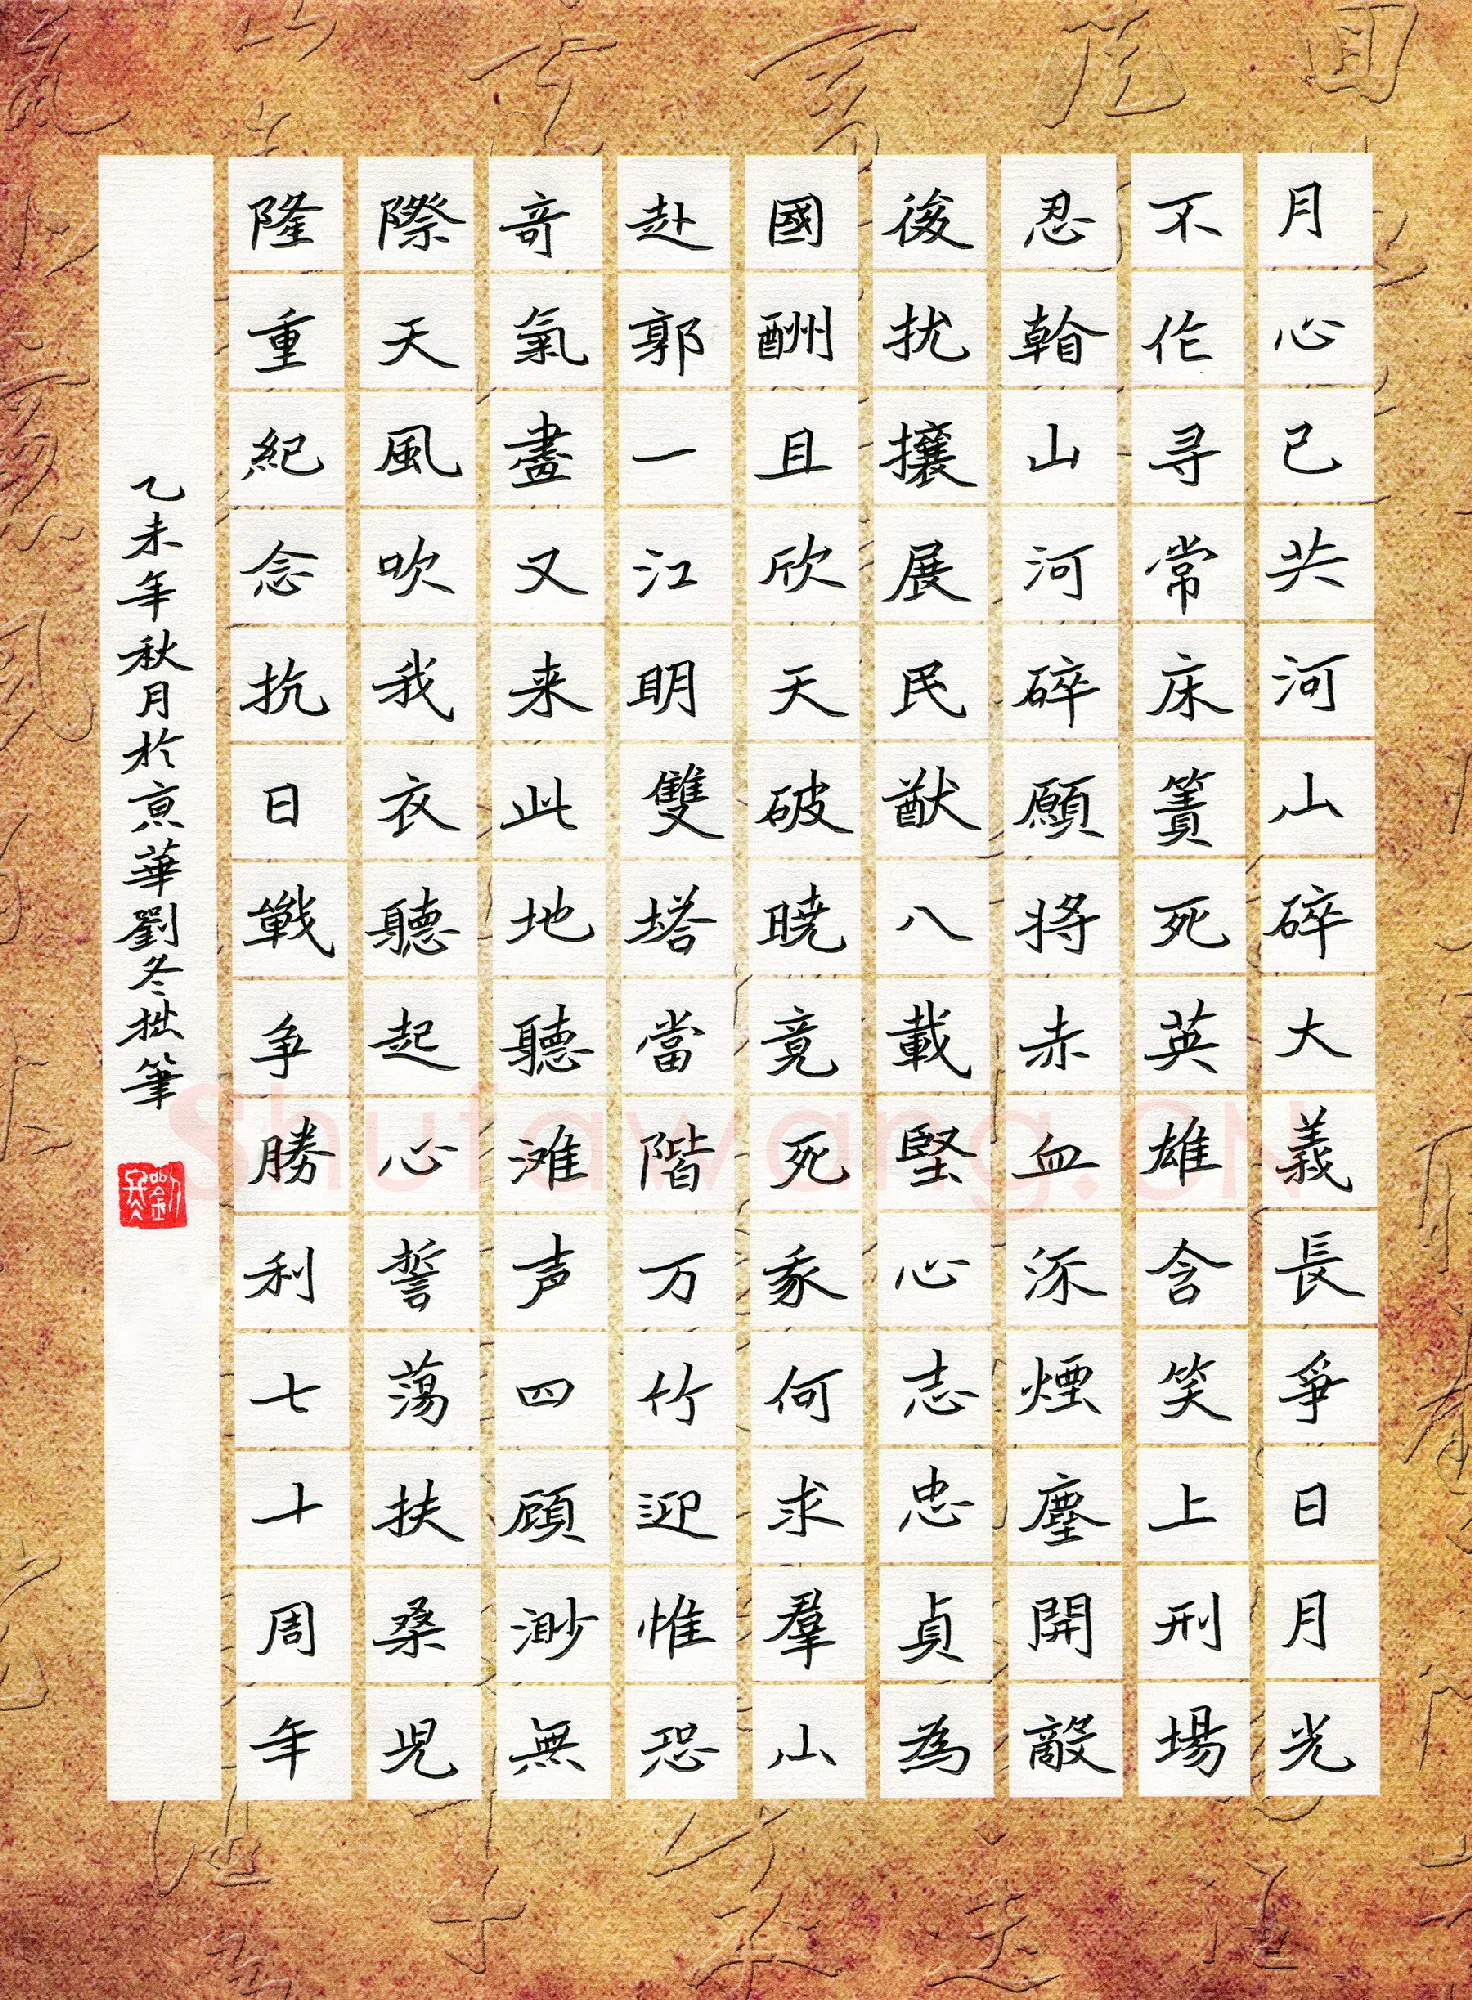 月心已共河山碎大義長爭日月光
不作尋常床簀死英雄含笑上刑場
忍翰山河碎願將赤血流煙塵開敵
後扰攘展民猷八載堅心志忠貞為
國酬且欣天破曉竟死豕何求羣山
赴郭一江明雙塔當階万竹迎惟恐
奇氣盡又来此地聽滩声四顧渺無
際天風吹我衣聽起心誓蕩扶桑児
隆重紀念抗日戰争勝利七十周年
乙未年秋月於京華劉冬拙筆
Shufawang.CN